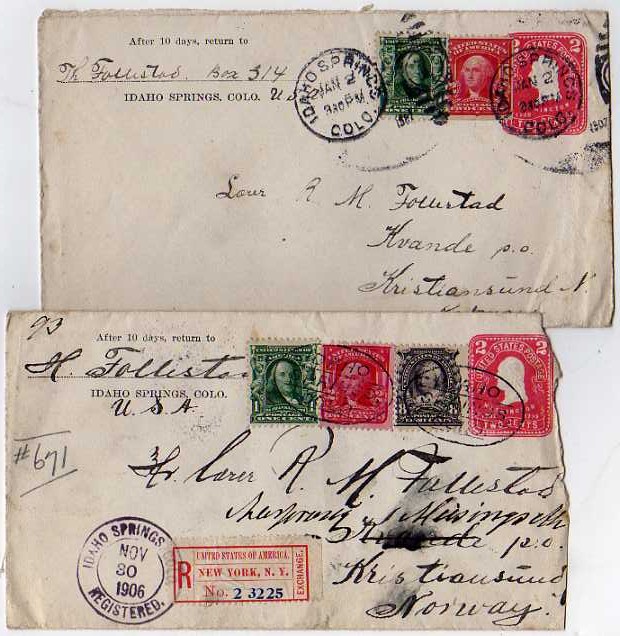 After 10 days, return to
Th Follestad. Box 314
IDAHO SPRINGS, COLO. U.S
IDAHO SPRINGS
JAN 2
COLO.
IDAHO SPRINGS
JAN 2
COLO.
1907
R. M. Follestad
Kvande p.o.
Kristiansund N.
93
After 10 days, return to
H. Follesta
IDAHO SPRINGS, COLO.
U.S.A.
#671
1 ONE CENT 1
8
UNITED STATES POSTAGE
2 2
TWO CENTS
Hr. Lærer R. M. Follestad
p.o.
Kristiansund
Norway.
IDAHO SPRINGS
NOV
30
1906
REGISTERED.
R
UNITED STATES OF AMERICA.
NEW YORK, N. Y.
No. 2 3225
EXCHANGE.